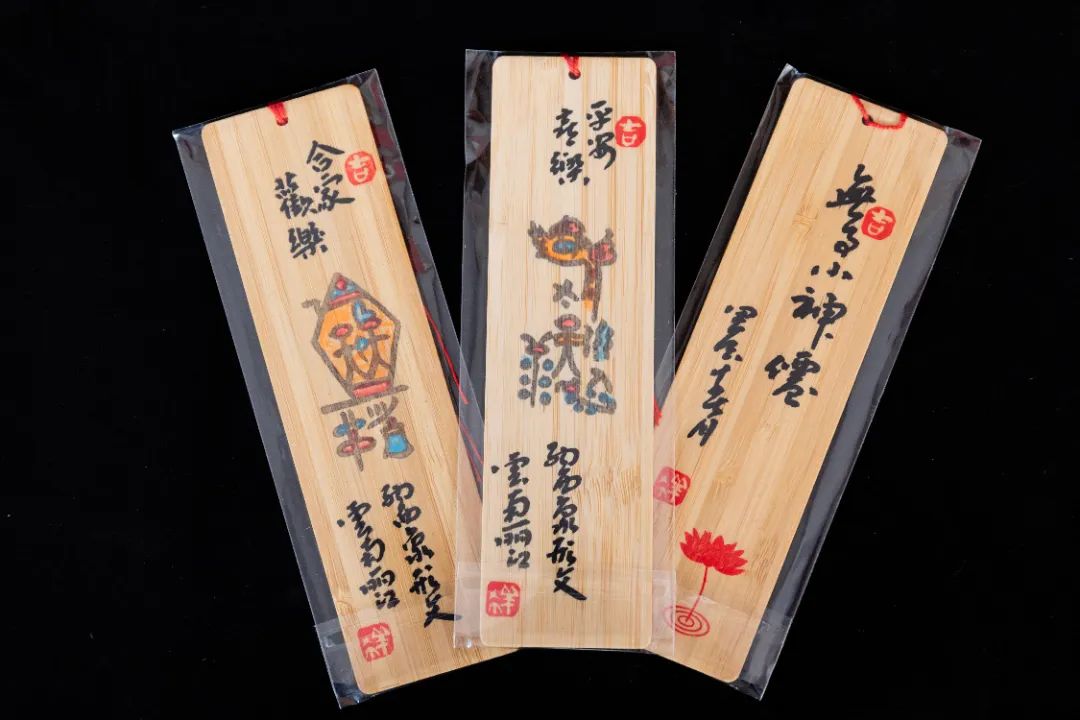 吉
合家
歡樂
納西象形文
雲南丽江
祥
吉
平安
喜樂
納西象形文
雲南丽江
祥
吉
無事小神僊
月
祥